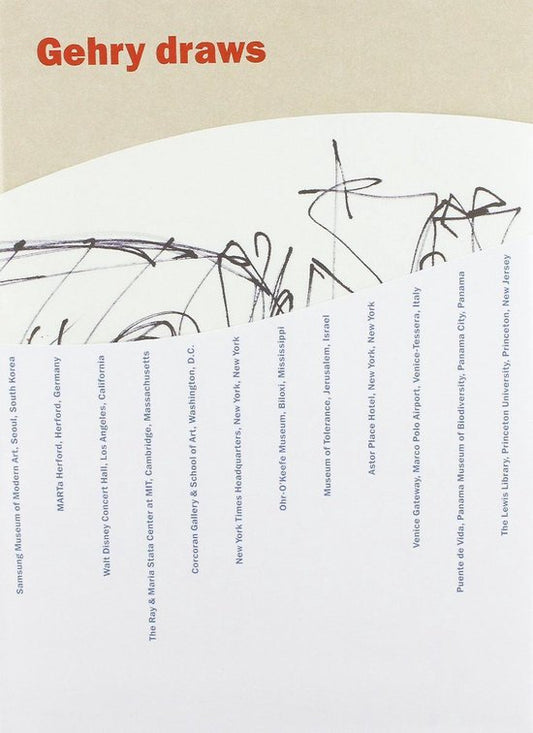 Gehry draws
Samsung Museum of Modern Art, Seoul, South Korea
MARTa Herford, Herford, Germany
Walt Disney Concert Hall, Los Angeles, California
The Ray & Maria Stata Center at MIT, Cambridge, Massachusetts
Corcoran Gallery & School of Art, Washington, D.C.
New York Times Headquarters, New York, New York
Ohr-O'Keefe Museum, Biloxi, Mississippi
Museum of Tolerance, Jerusalem, Israel
Astor Place Hotel, New York, New York
Venice Gateway, Marco Polo Airport, Venice-Tessera, Italy
Puente de Vida, Panama Museum of Biodiversity, Panama City, Panama
The Lewis Library, Princeton University, Princeton, New Jersey